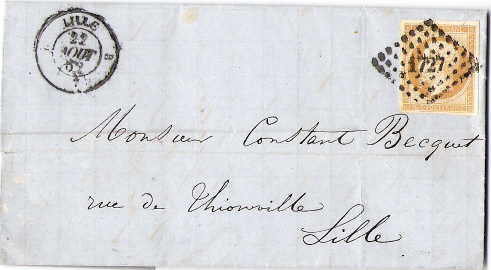 LILLE
22
AOUT
1727
Monsieur Constant Becquet
rue de Thionville
Lille